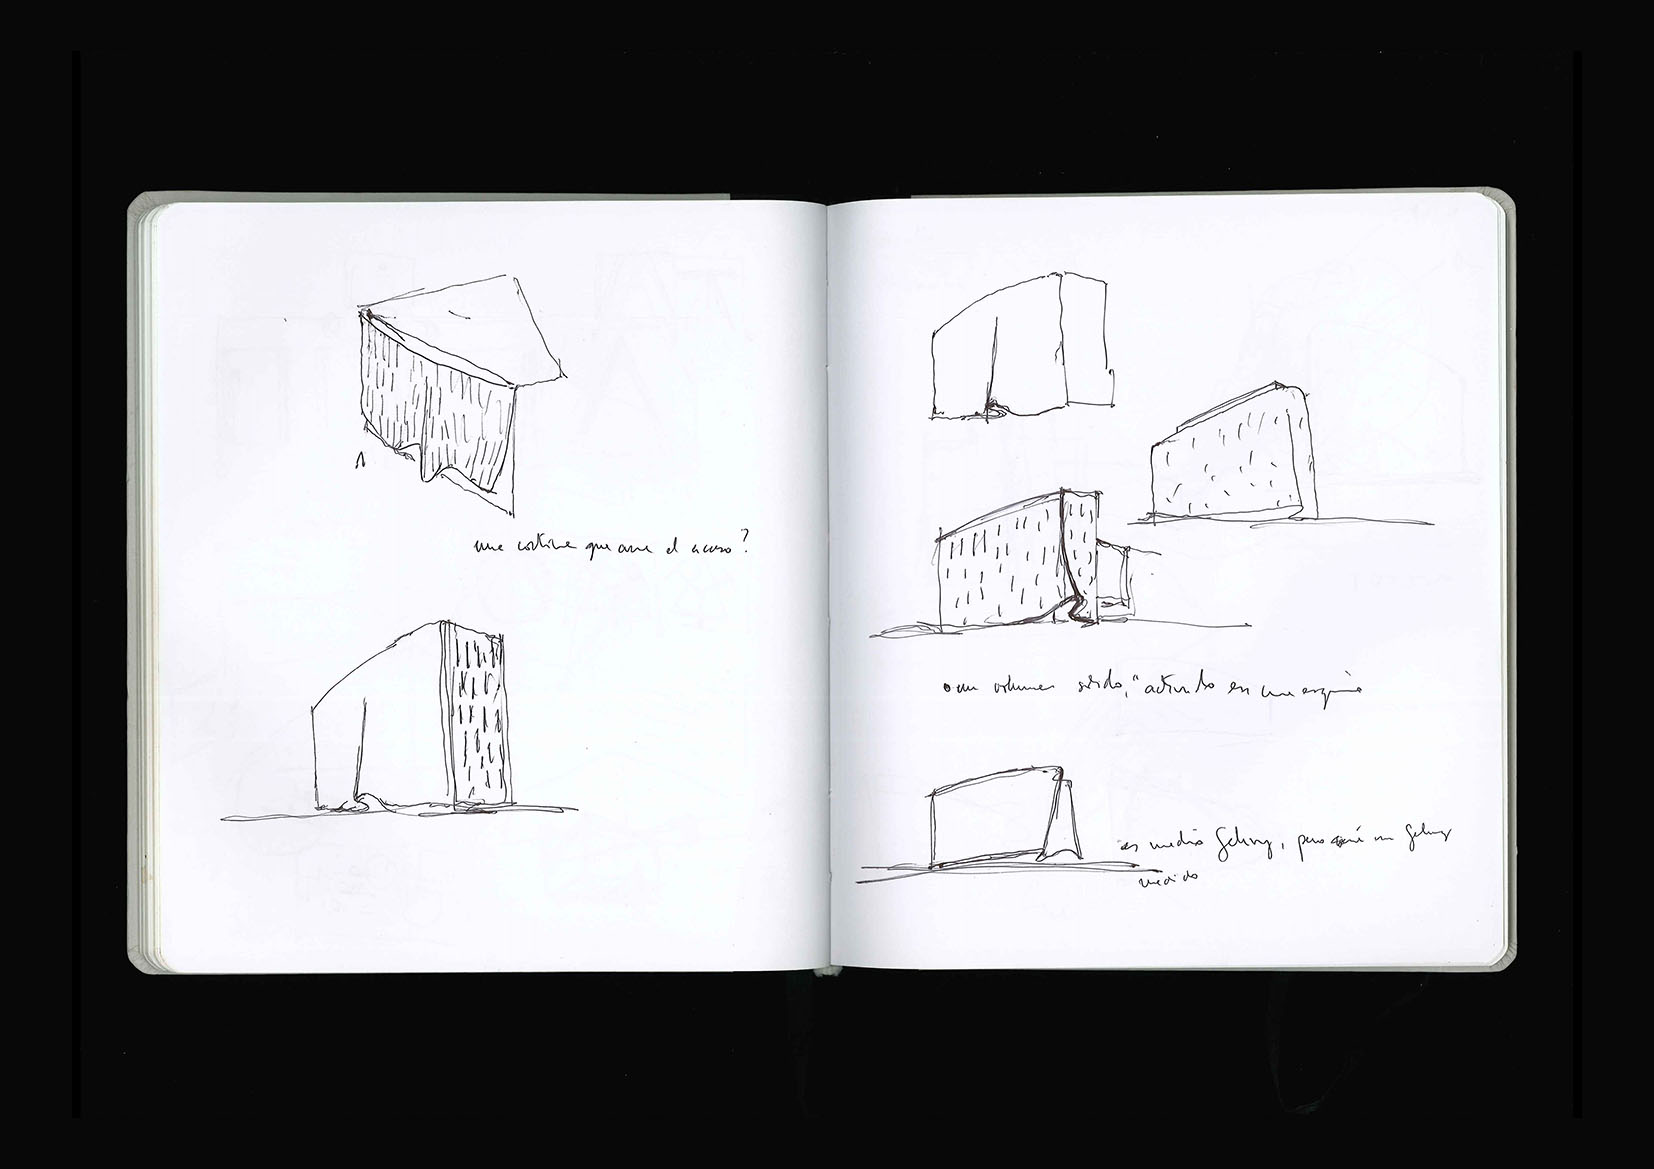 una cortina que abre el acceso?
o un volumen sólido, "activado en una esquina
es medio Gehry, pero un Gehry
medido